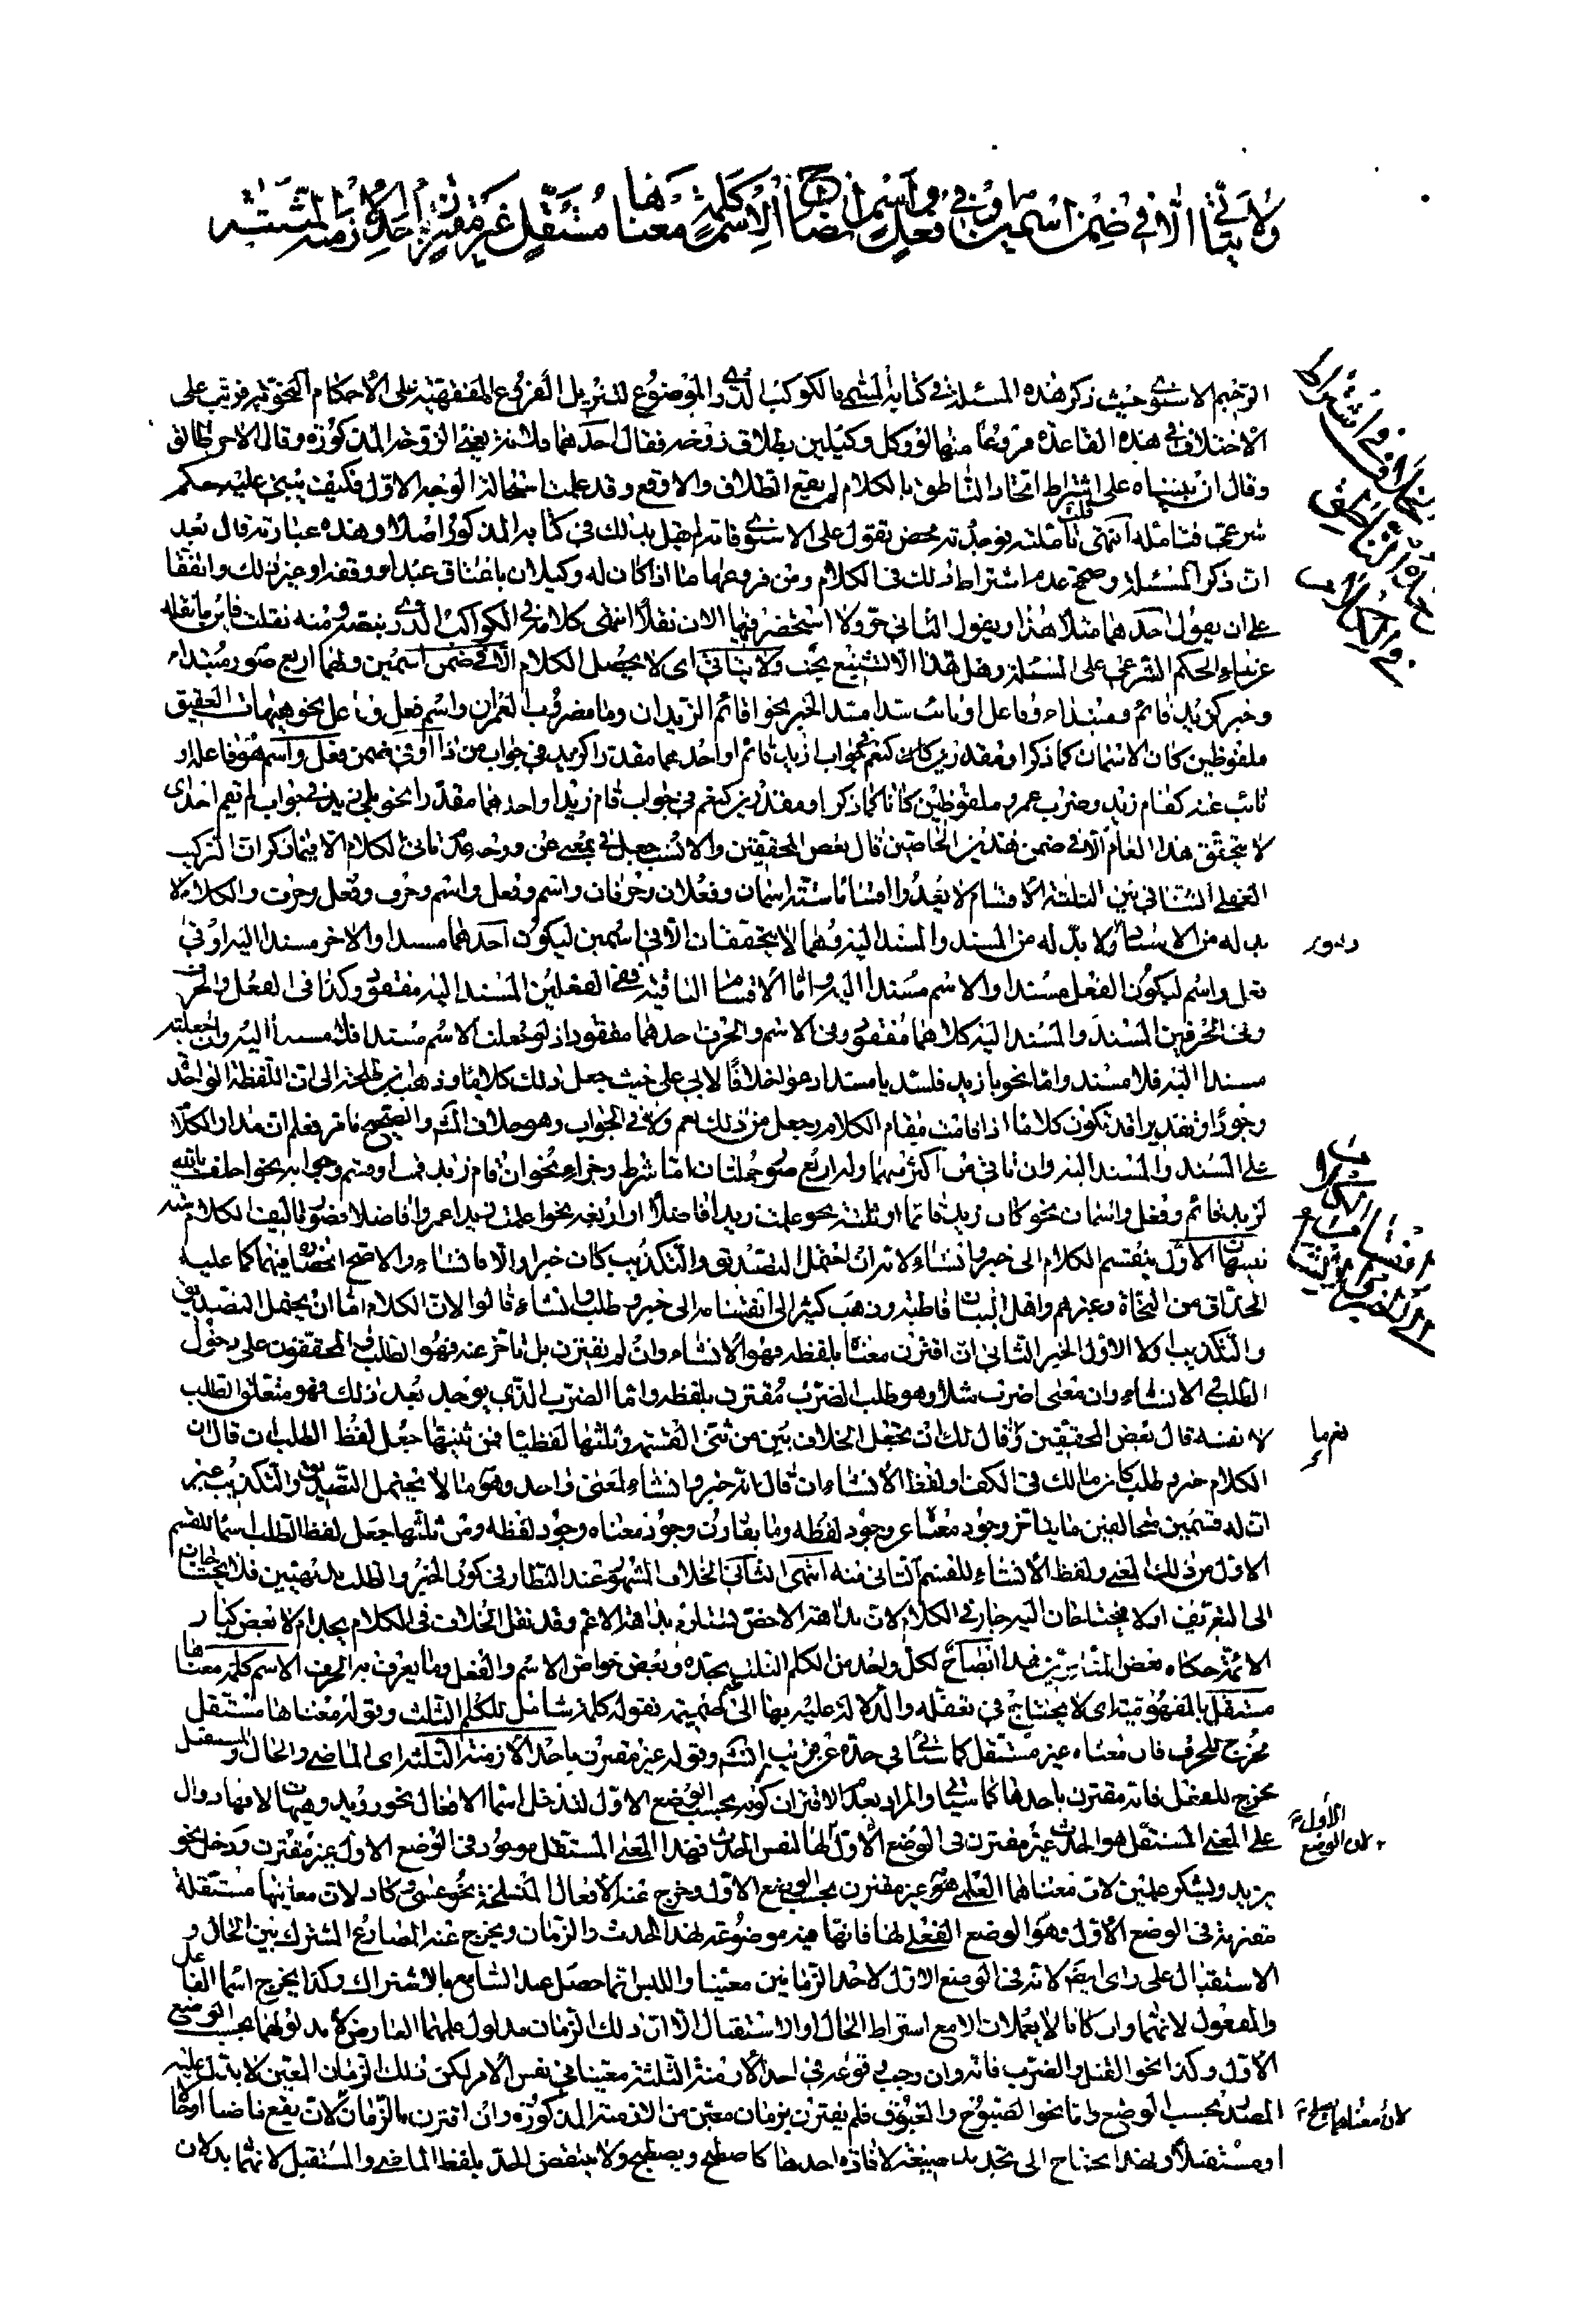 ولا يتأتى الا في ضمن اسمين او في فعل واسم ايضاح الاسم كلمة معناها مستقل غير مقترن باحد الازمنة الثلثة
الرحيم الاسنوي حيث ذكر هذه المسئلة في كتابه المسمى بالكوكب الدري الموضوع لتنزيل الفروع الفقهية على الاحكام النحوية فرتب على
الاختلاف في هذه القاعدة فروعا منها لو وكل وكيلين بطلاق زوجته فقال احدهما فلانة يعني الزوجة المذكورة وقال الاخر طالق
وقال ان بنيناه على اشتراط اتحاد الناطق بالكلام لم يقع الطلاق والا وقع وقد علمت استحالة الوجه الاول فكيف يبنى عليه حكم
شرعي فتامله انتهى قلت تاملته فوجدته محض تقول على الاسنوي فانه لم يقل بذلك في كتابه المذكور اصلا وهذه عبارته قال بعد
ان ذكر المسئلة وصحح عدم اشتراط ذلك في الكلام ومن فروعها ما اذا كان له وكيلان باعتاق عبد او وقفه او غير ذلك واتفقا
على ان يقول احدهما مثلا هذا ويقول الثاني حر ولا استحضر فيها الان نقلا انتهى كلامه في الكوكب الدري بنصه ومنه نقلت فاين ما نقله
عن بناء الحكم الشرعي على المسئلة وهل هذا الا تشنيع بحت ولا يتاتى اي لا يحصل الكلام الا في ضمن اسمين ولهما اربع صور مبتداء
وخبر كزيد قائم ومبتداء وفاعل او نائب سدا مسد الخبر نحو اقائم الزيدان وما مضروب العمران واسم فعل وفاعل نحو هيهات العقيق
ملفوظين كان الاسمان كما ذكر او مقدرين كان كنعم في جواب ازيد قائم او احدهما مقدرا كزيد في جواب من ذا او في ضمن فعل واسم هو فاعله او
نائب عنه كقام زيد وضرب عمرو ملفوظين كانا كما ذكر او مقدرين كنعم في جواب قام زيد او احدهما مقدرا نحو بلى زيد في جواب لم يقم احد اي
لا يتحقق هذا العام الا في ضمن هذين الخاصين قال بعض المحققين والانسب جعل في بمعنى من ووجه عدم تاتي الكلام الا فيما ذكر ان التركيب
العقلي الثنائي بين الثلثة الاقسام لا يعدو اقساما ستة اسمان وفعلان وحرفان واسم وفعل واسم وحرف وفعل وحرف والكلام لا
بد له من الاسناد ولا بد له من المسند والمسند اليه وهما لا يتحققان الا في اسمين ليكون احدهما مسندا والاخر مسندا اليه او في
فعل واسم ليكون الفعل مسندا والاسم مسندا اليه واما الاقسام الباقية ففي الفعلين المسند اليه مفقود وكذا في الفعل والحرف
وفي الحرفين المسند والمسند اليه كلاهما مفقود وفي الاسم والحرف احدهما مفقود اذ لو جعلت الاسم مسندا فلا مسند اليه وان جعلته
مسندا اليه فلا مسند واما نحو يا زيد فلسد يا مسد ادعو خلافا لابي علي حيث جعل ذلك كلاما وذهب ابن طلحة الى ان اللفظة الواحدة
وجودا وتقديرا قد تكون كلاما اذا قامت مقام الكلام وجعل من ذلك نعم ولا في الجواب وهو خلاف المش والصحيح ما مر فعلم ان مدار الكلام
على المسند والمسند اليه وان تاتى من اكثر منهما وله اربع صور جملتان اما شرط وجزاء نحو ان قام زيد قمت او قسم وجوابه نحو احلف بالله
لزيد قائم وفعل واسمان نحو كان زيد قائما او ثلثة نحو علمت زيدا فاضلا او اربعة نحو اعلمت زيدا عمروا فاضلا فصور تاليف الكلام ستة
تنبيهان الاول ينقسم الكلام الى خبر وانشاء لانه ان احتمل التصديق والتكذيب كان خبرا والا فانشاء والاصح انحصاره فيهما كما عليه
الحذاق من النحاة وغيرهم واهل البيان قاطبة وذهب كثير الى انقسامه الى خبر وطلب وانشاء قالوا لان الكلام اما ان يحتمل التصديق
والتكذيب او لا الاول الخبر الثاني ان اقترن معناه بلفظه فهو الانشاء وان لم يقترن بل تاخر عنه فهو الطلب والمحققون على دخول
الطلب في الانشاء وان معنى اضرب مثلا وهو طلب الضرب مقترن بلفظه واما الضرب الذي يوجد بعد ذلك فهو متعلق الطلب
لا نفسه قال بعض المحققين ولك ان تجعل الخلاف بين من ثنى القسمة وثلثها لفظيا فمن ثلثها جعل لفظ الطلب ان قال ان
الكلام خبر وطلب كابن مالك في الكافية او لفظ الانشاء ان قال انه خبر وانشاء لمعنى واحد وهو ما لا يحتمل التصديق والتكذيب غير
ان له قسمين متخالفين ما يتاخر وجود معناه عن وجود لفظه وما يقارن وجود معناه وجود لفظه ومن ثلثها جعل لفظ الطلب اسما للقسم
الاول من ذلك المعنى ولفظ الانشاء للقسم الثاني منه انتهى الثاني الخلاف المشهور عند النظار في كون الخبر والطلب بديهيين فلا يحتاجان
الى التعريف او لا فيحتاجان اليه جار في الكلام لان بداهة الاخص تستلزم بداهة الاعم وقد نقل الخلاف في الكلام يحد ام لا بعض كبار
الائمة حكاه بعض المتاخرين هذا ايضاح لكل واحد من الكلم الثلث بحده وبعض خواص الاسم والفعل وما يعرف به الحرف الاسم كلمة معناها
مستقل بالمفهومية اي لا يحتاج في تعقله والدلالة عليه بها الى ضميمة فقوله كلمة شامل للكلم الثلث وقوله معناها مستقل
مخرج للحرف فان معناه غير مستقل كما سياتي في حده عن قريب ان شاء الله وقوله غير مقترن باحد الازمنة الثلثة اي الماضي والحال والمستقبل
مخرج للفعل فانه مقترن باحدها كما سياتي والمراد بعدم الاقتران كونه بحسب الوضع الاول لتدخل اسماء الافعال نحو رويد وهيهات لانها دوال
على المعنى المستقل هو الحدث غير مقترن في الوضع الاول لها لنفس الحدث فهذا المعنى المستقل موجود في الوضع الاول غير مقترن ودخل نحو
يزيد ويشكر علمين لان معناهما العلمي هو غير مقترن بحسب الوضع الاول وخرج عنه الافعال المنسلخة نحو عسى وكاد لان معانيها مستقلة
مقترنة في الوضع الاول وهو الوضع الفعلي لها فانها فيه موضوعة لهذا الحدث والزمان ويخرج عنه المضارع المشترك بين الحال و
الاستقبال على راي ايضا لانه في الوضع الاول لاحد الزمانين معينا واللبس انما حصل عند السامع بالاشتراك وكذا يخرج اسما الفاعل
والمفعول لانهما وان كانا لا يعملان الا مع اشتراط الحال او الاستقبال الا ان ذلك الزمان مدلول عملهما العارض لا مدلولهما بحسب الوضع
الاول وكذا نحو القتل والضرب فانه وان وجب وقوعه في احد الازمنة الثلثة معينا في نفس الامر لكن ذلك الزمان المعين لا يدل عليه
المصدر بحسب الوضع واما نحو الصبوح والغبوق فلم يقترن بزمان معين من الازمنة المذكورة وان اقترن بالزمان لان يقع ماضيا او حالا
او مستقبلا ولهذا يحتاج الى تجديد صيغة لافادة احدها كاصطبح ويصطبح ولا ينتقض الحد بلفظ الماضي والمستقبل لانهما يدلان
الخلاف في اشتراط
اتحاد الناطق
في الكلام
انقسام الكلام
الى الخبر والانشاء
الاول
لان الوضع